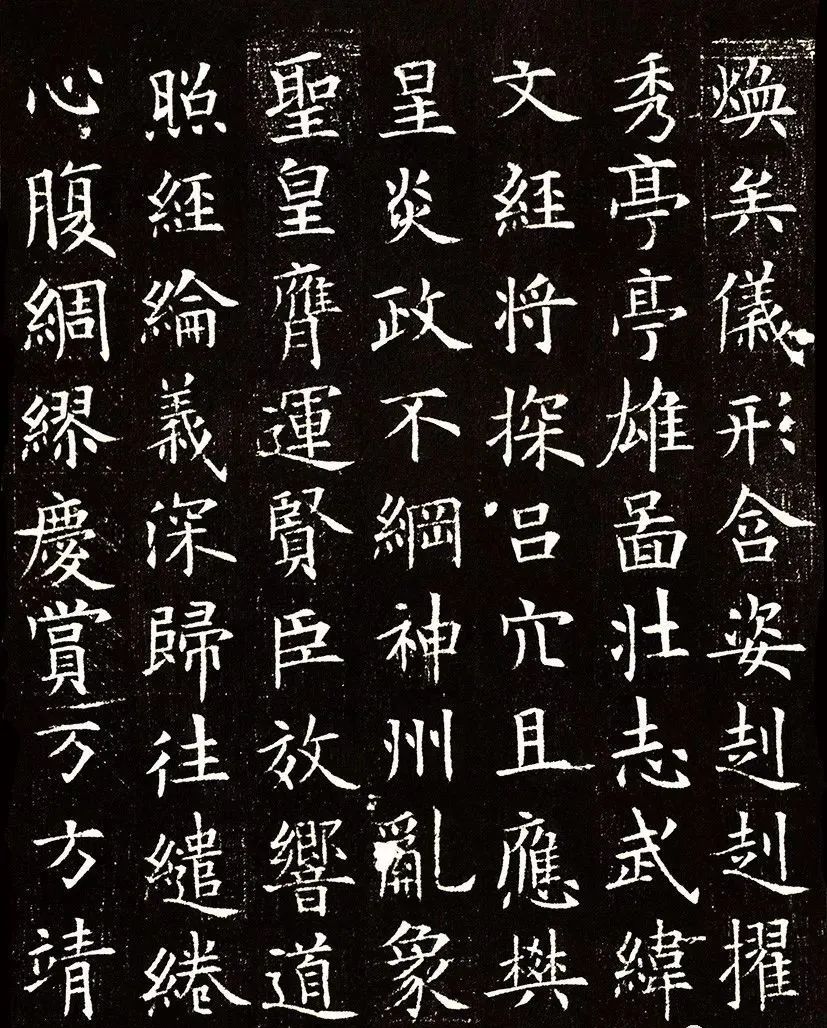 焕矣儀形含姿赳赳擢
秀亭亭雄啚壮志武緯
文經将探吕穴且應樊
星炎政不綱神州亂象
聖皇膺運賢臣放響道
照經綸義深歸往繾綣
心腹綢繆慶賞万方靖